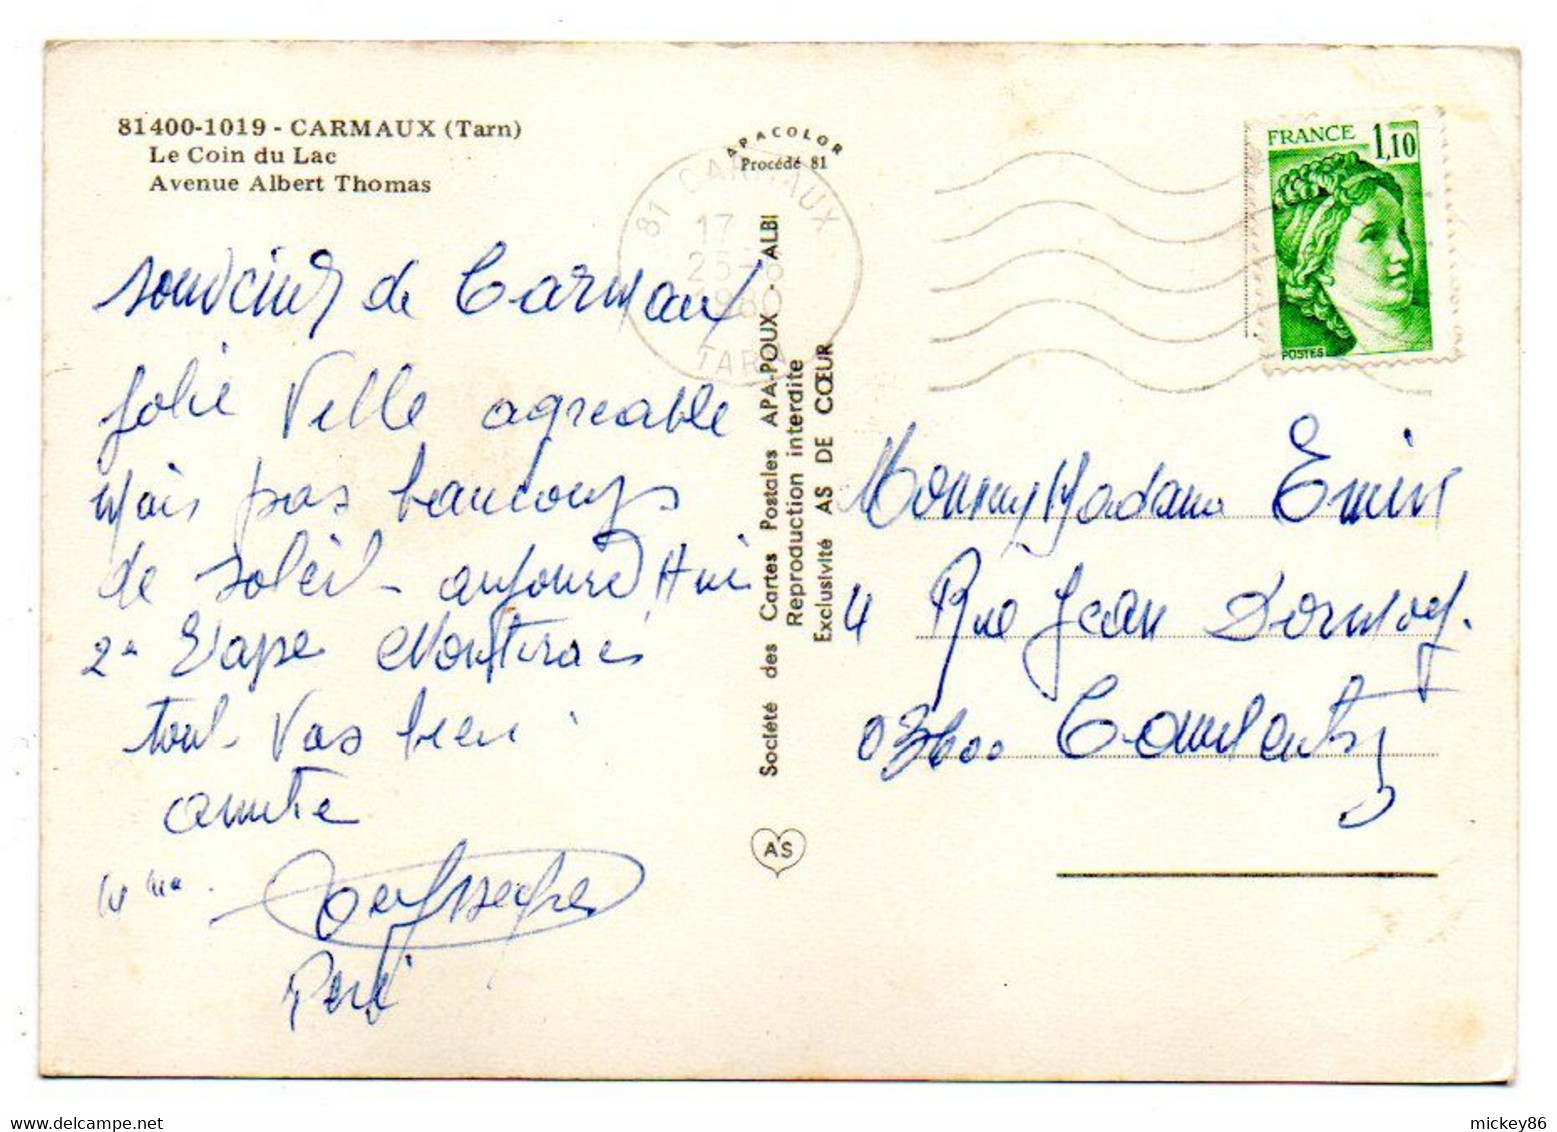 81400-1019 - CARMAUX (Tarn)
Le Coin du Lac
Avenue Albert Thomas
APACOLOR
Procédé 81
81 CARMAUX
17
25-6
1980
TARN
FRANCE 1,10
POSTES
souvenir de Carmaux
jolie Ville agreable
mais pas beaucoup
de soleil - aujourd'Hui
2e Etape Montirais
tout Vas bien
amitie
Société des Cartes Postales APA-POUX - ALBI
Reproduction interdite
Exclusivité AS DE CŒUR
AS
Madame
4 Rue Jean Dormoy
03600 Commentry
mickey86